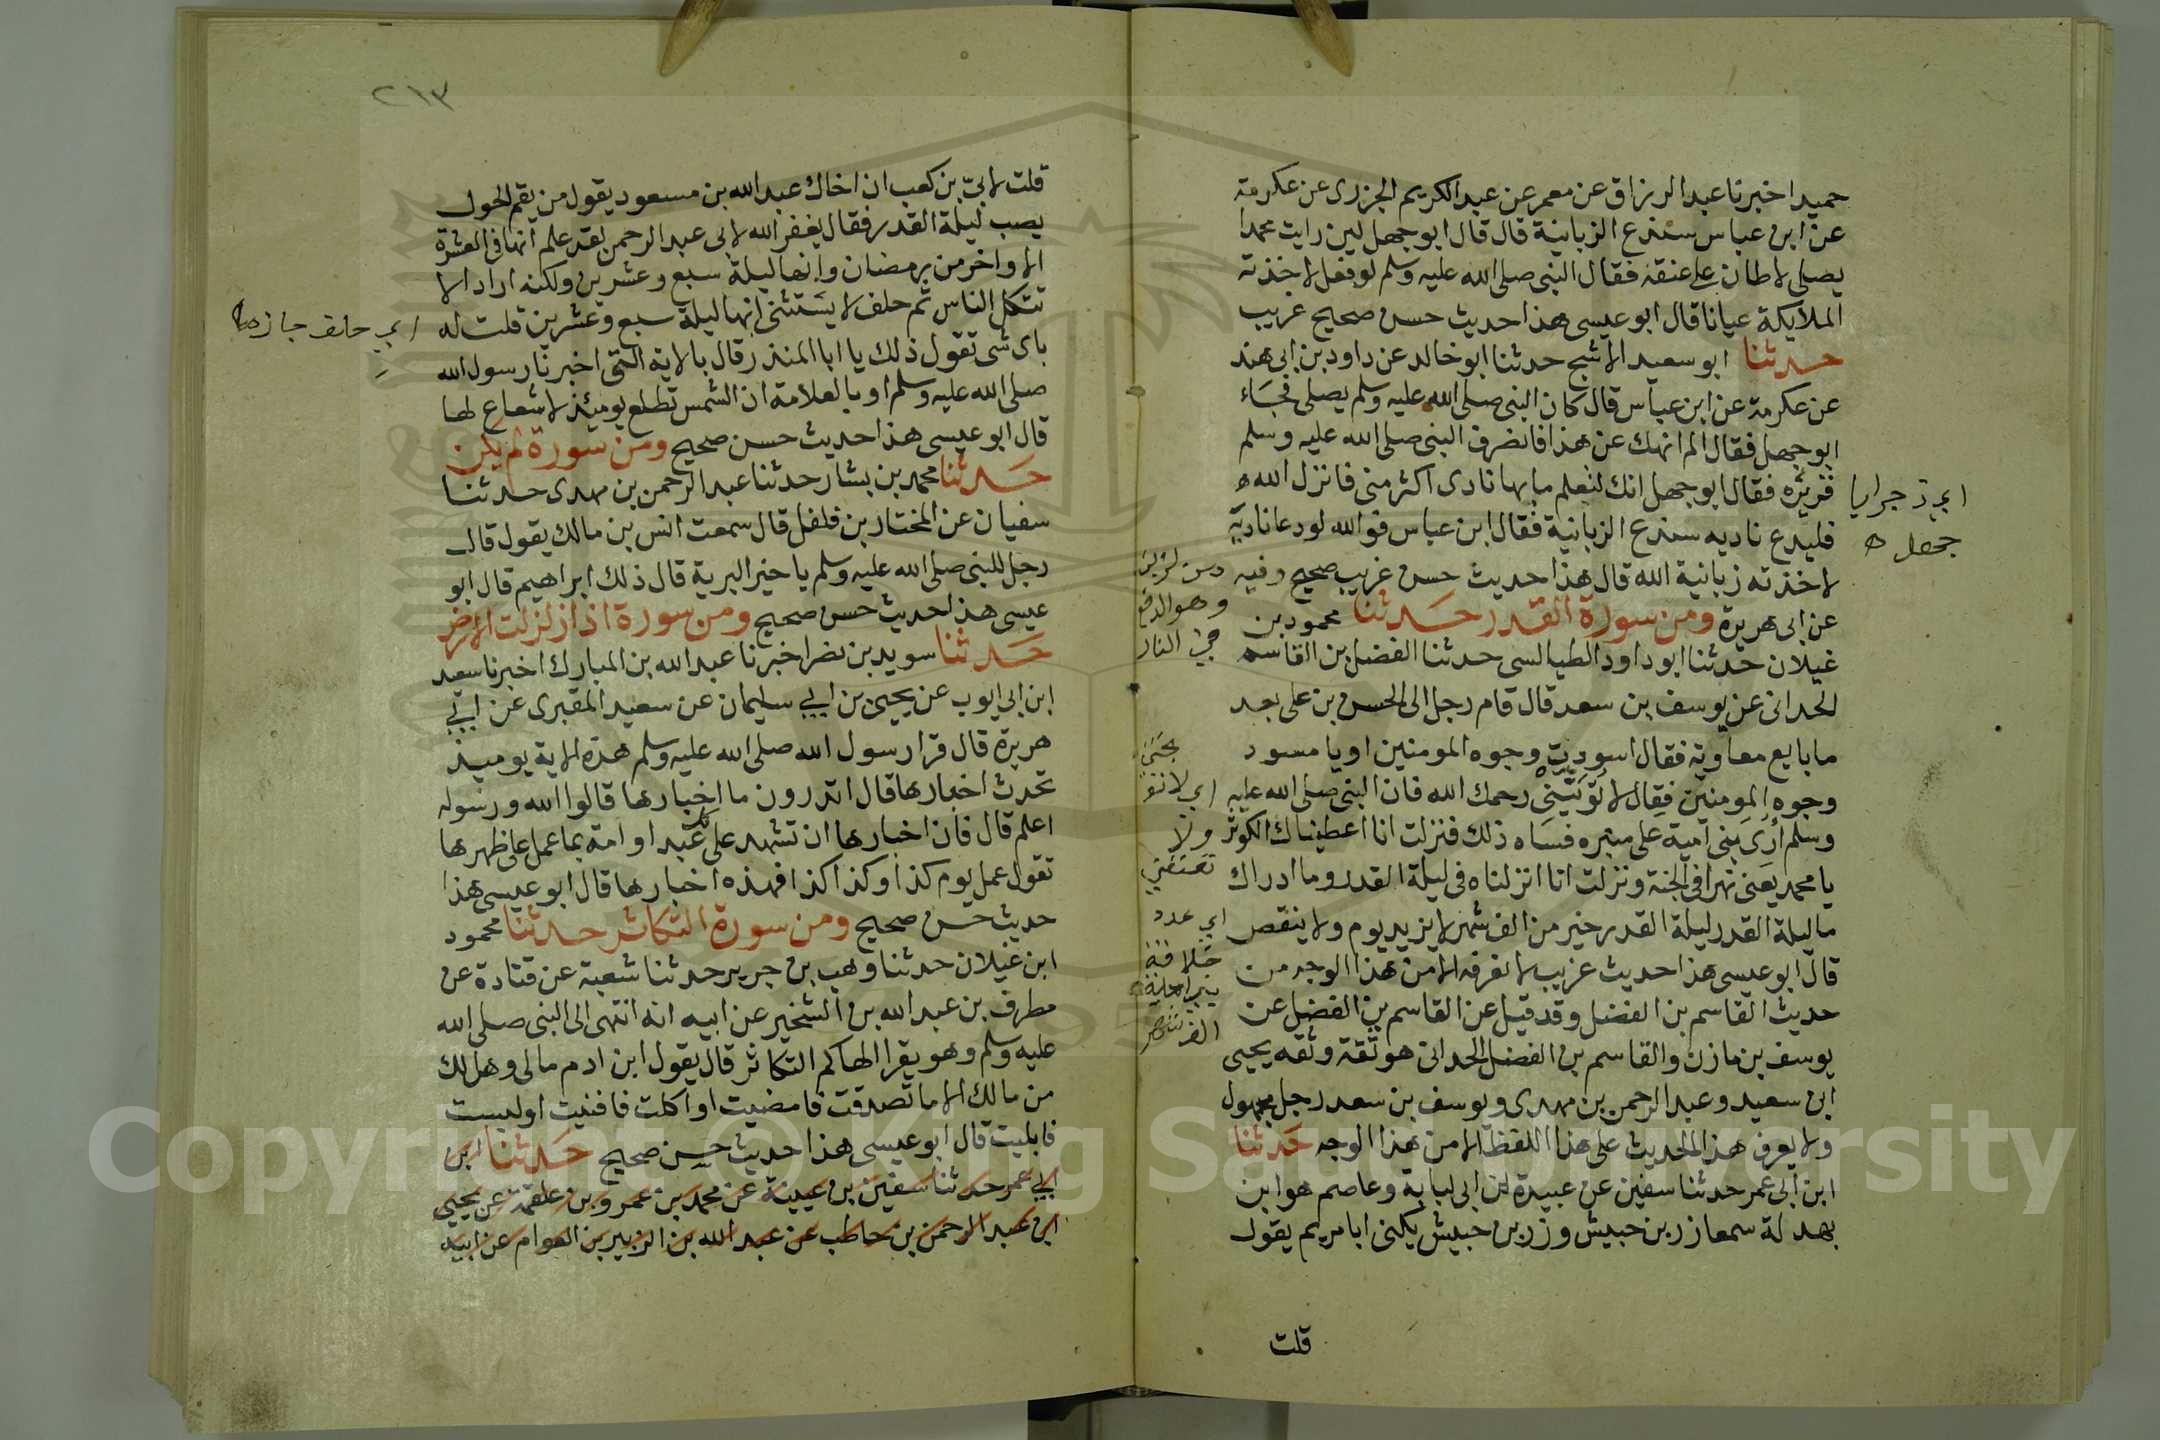 حميد اخبرنا عبد الرزاق عن معمر عن عبد الكريم الجزري عن عكرمة
عن ابن عباس سندع الزبانية قال قال ابو جهل لين رايت محمدا
يصلي لاطان على عنقه فقال النبي صلى الله عليه وسلم لو فعل لاخذته
الملايكة عيانا قال ابو عيسى هذا حديث حسن صحيح غريب
حدثنا ابو سعيد الاشج حدثنا ابو خالد عن داود بن ابي هند
عن عكرمة عن ابن عباس قال كان النبي صلى الله عليه وسلم يصلي فجاء
ابو جهل فقال الم انهك عن هذا فانصرف النبي صلى الله عليه وسلم
فزبره فقال ابو جهل انك لتعلم ما بها نادى اكثر مني فانزل الله
فليدع ناديه سندع الزبانية فقال ابن عباس فوالله لو دعا ناديه
لاخذته زبانية الله قال هذا حديث حسن غريب صحيح وفيه
عن ابي هريرة ومن سورة القدر حدثنا محمود بن
غيلان حدثنا ابو داود الطيالسي حدثنا الفضل بن القاسم
الحداني عن يوسف بن سعد قال قام رجل الى الحسن بن علي بعد
ما بايع معاوية فقال اسودت وجوه المومنين او يا مسود
وجوه المومنين فقال لا تؤنبني رحمك الله فان النبي صلى الله عليه
وسلم أرى بني امية على منبره فساه ذلك فنزلت انا اعطيناك الكوثر
يا محمد يعني نهرا في الجنة ونزلت انا انزلناه في ليلة القدر وما ادراك
ما ليلة القدر ليلة القدر خير من الف شهر لا يزيد يوم ولا ينقص
قال ابو عيسى هذا حديث غريب لا نعرفه الا من هذا الوجه من
حديث القاسم بن الفضل وقد قيل عن القاسم بن الفضل عن
يوسف بن مازن والقاسم بن الفضل الحداني هو ثقة وثقه يحيى
ابن سعيد وعبد الرحمن بن مهدي ويوسف بن سعد رجل مجهول
ولا يعرف هذا الحديث على هذا اللفظ الا من هذا الوجه حدثنا
ابن ابي عمر حدثنا سفين عن عبيدة بن ابي لبابة وعاصم هو ابن
بهدلة سمعا زر بن حبيش وزر بن حبيش يكنى ابا مريم يقول
قلت
جهل
اي لا
ولا
اي عدد
خلافة
الف شهر
٢١٣
قلت لابيّ بن كعب ان اخاك عبد الله بن مسعود يقول من يقم الحول
يصب ليلة القدر فقال يغفر الله لابي عبد الرحمن لقد علم انها في العشرة
الاواخر من رمضان وانها ليلة سبع وعشرين ولكنه اراد الا
تتكل الناس ثم حلف لا يستثني انها ليلة سبع وعشرين قلت له
باي شي تقول ذلك يا ابا المنذر قال بالاية التي اخبرنا رسول الله
صلى الله عليه وسلم او بالعلامة ان الشمس تطلع يومئذ لا شعاع لها
قال ابو عيسى هذا حديث حسن صحيح ومن سورة لم يكن
حدثنا محمد بن بشار حدثنا عبد الرحمن بن مهدي حدثنا
سفيان عن المختار بن فلفل قال سمعت انس بن مالك يقول قال
رجل للنبي صلى الله عليه وسلم يا خير البرية قال ذلك ابراهيم قال ابو
عيسى هذا حديث حسن صحيح ومن سورة اذا زلزلت الارض
حدثنا سويد بن نصر اخبرنا عبد الله بن المبارك اخبرنا سعد
ابن ابي ايوب عن يحيى بن ابي سليمان عن سعيد المقبري عن ابي
هريرة قال قرا رسول الله صلى الله عليه وسلم هذه الاية يوميذ
تحدث اخبارها قال اتدرون ما اخبارها قالوا الله ورسوله
اعلم قال فان اخبارها ان تشهد على كل عبد او امة بما عمل على ظهرها
تقول عمل يوم كذا وكذا كذا فهذه اخبارها قال ابو عيسى هذا
حديث حسن صحيح ومن سورة التكاثر حدثنا محمود
ابن غيلان حدثنا وهب بن جرير حدثنا شعبة عن قتادة عن
مطرف بن عبد الله بن الشخير عن ابيه انه انتهى الى النبي صلى الله
عليه وسلم وهو يقرا الهاكم التكاثر قال يقول ابن ادم مالي وهل لك
من مالك الا ما تصدقت فامضيت او اكلت فافنيت او لبست
فابليت قال ابو عيسى هذا حديث حسن صحيح حدثنا ابن
ابي عمر حدثنا سفين بن عيينة عن محمد بن عمرو بن علقمة عن يحيى
ابن عبد الرحمن بن حاطب عن عبد الله بن الزبير بن العوام عن ابيه
Copyright © King Saud University